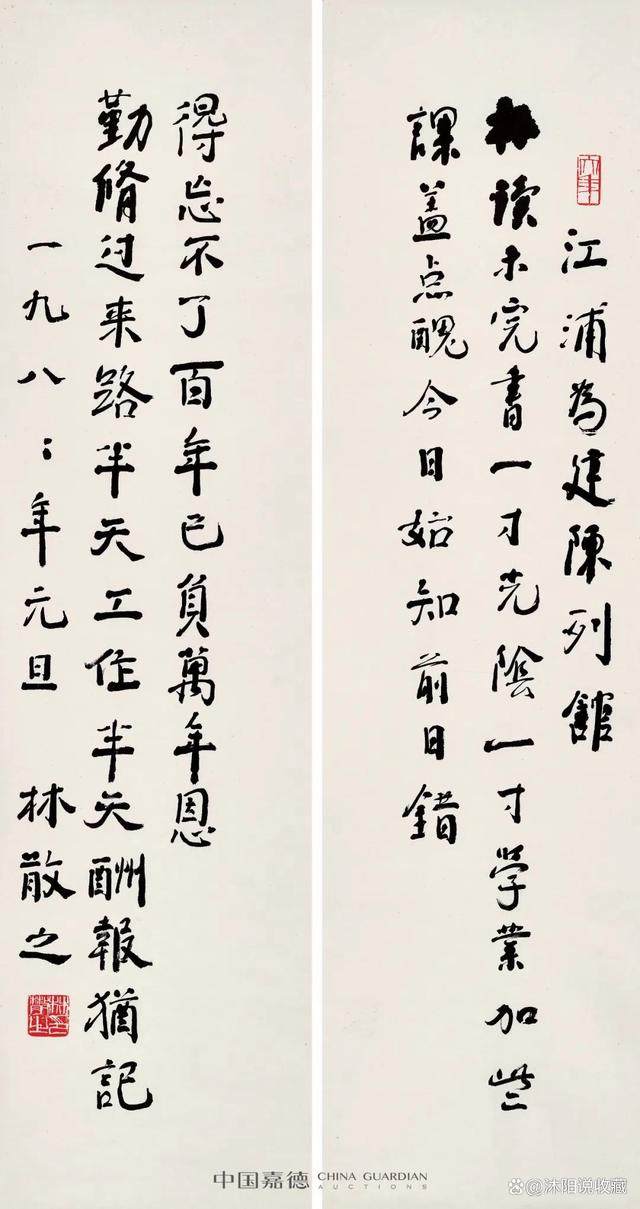 江浦為建陳列館
读未完書一寸光陰一寸学業加些
課盖点醜今日始知前日錯
勤脩过来路半天工作半天酬報猶記
得忘不了百年已負萬年恩
一九八二年元旦 林散之
中国嘉德 CHINA GUARDIAN
AUCTIONS
@沐阳说收藏